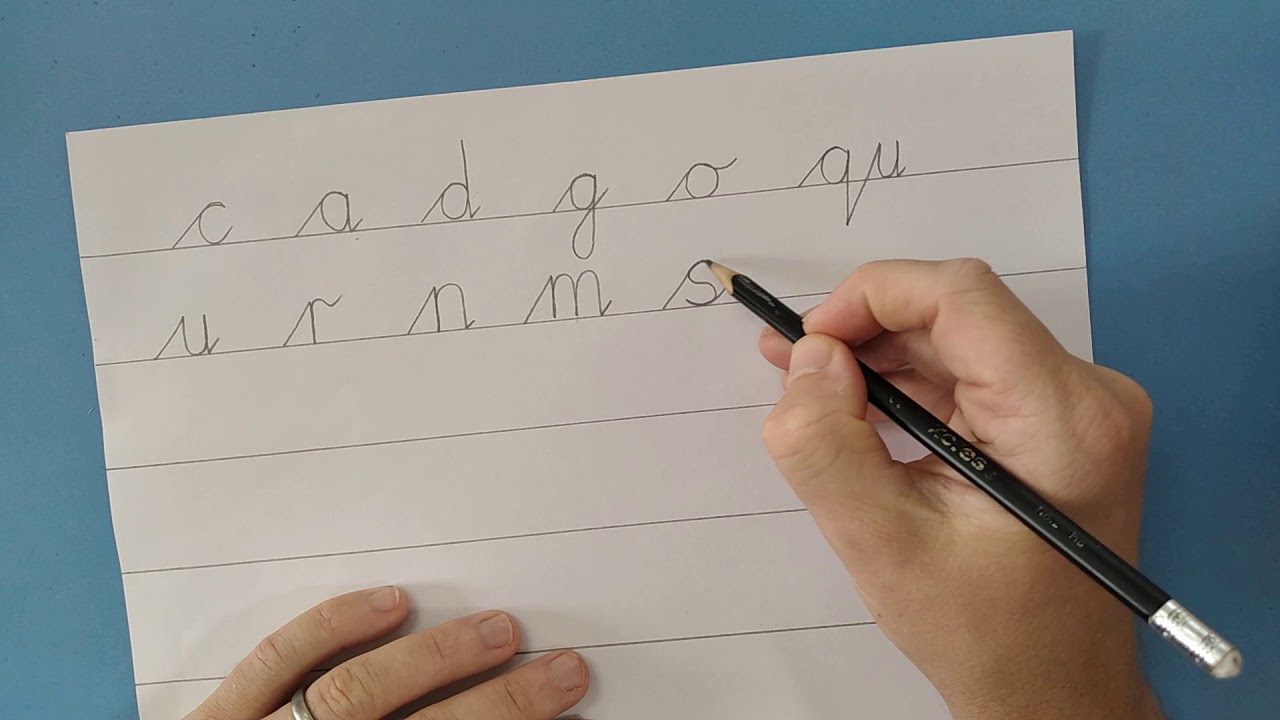 c a d g o qu
u r n m s